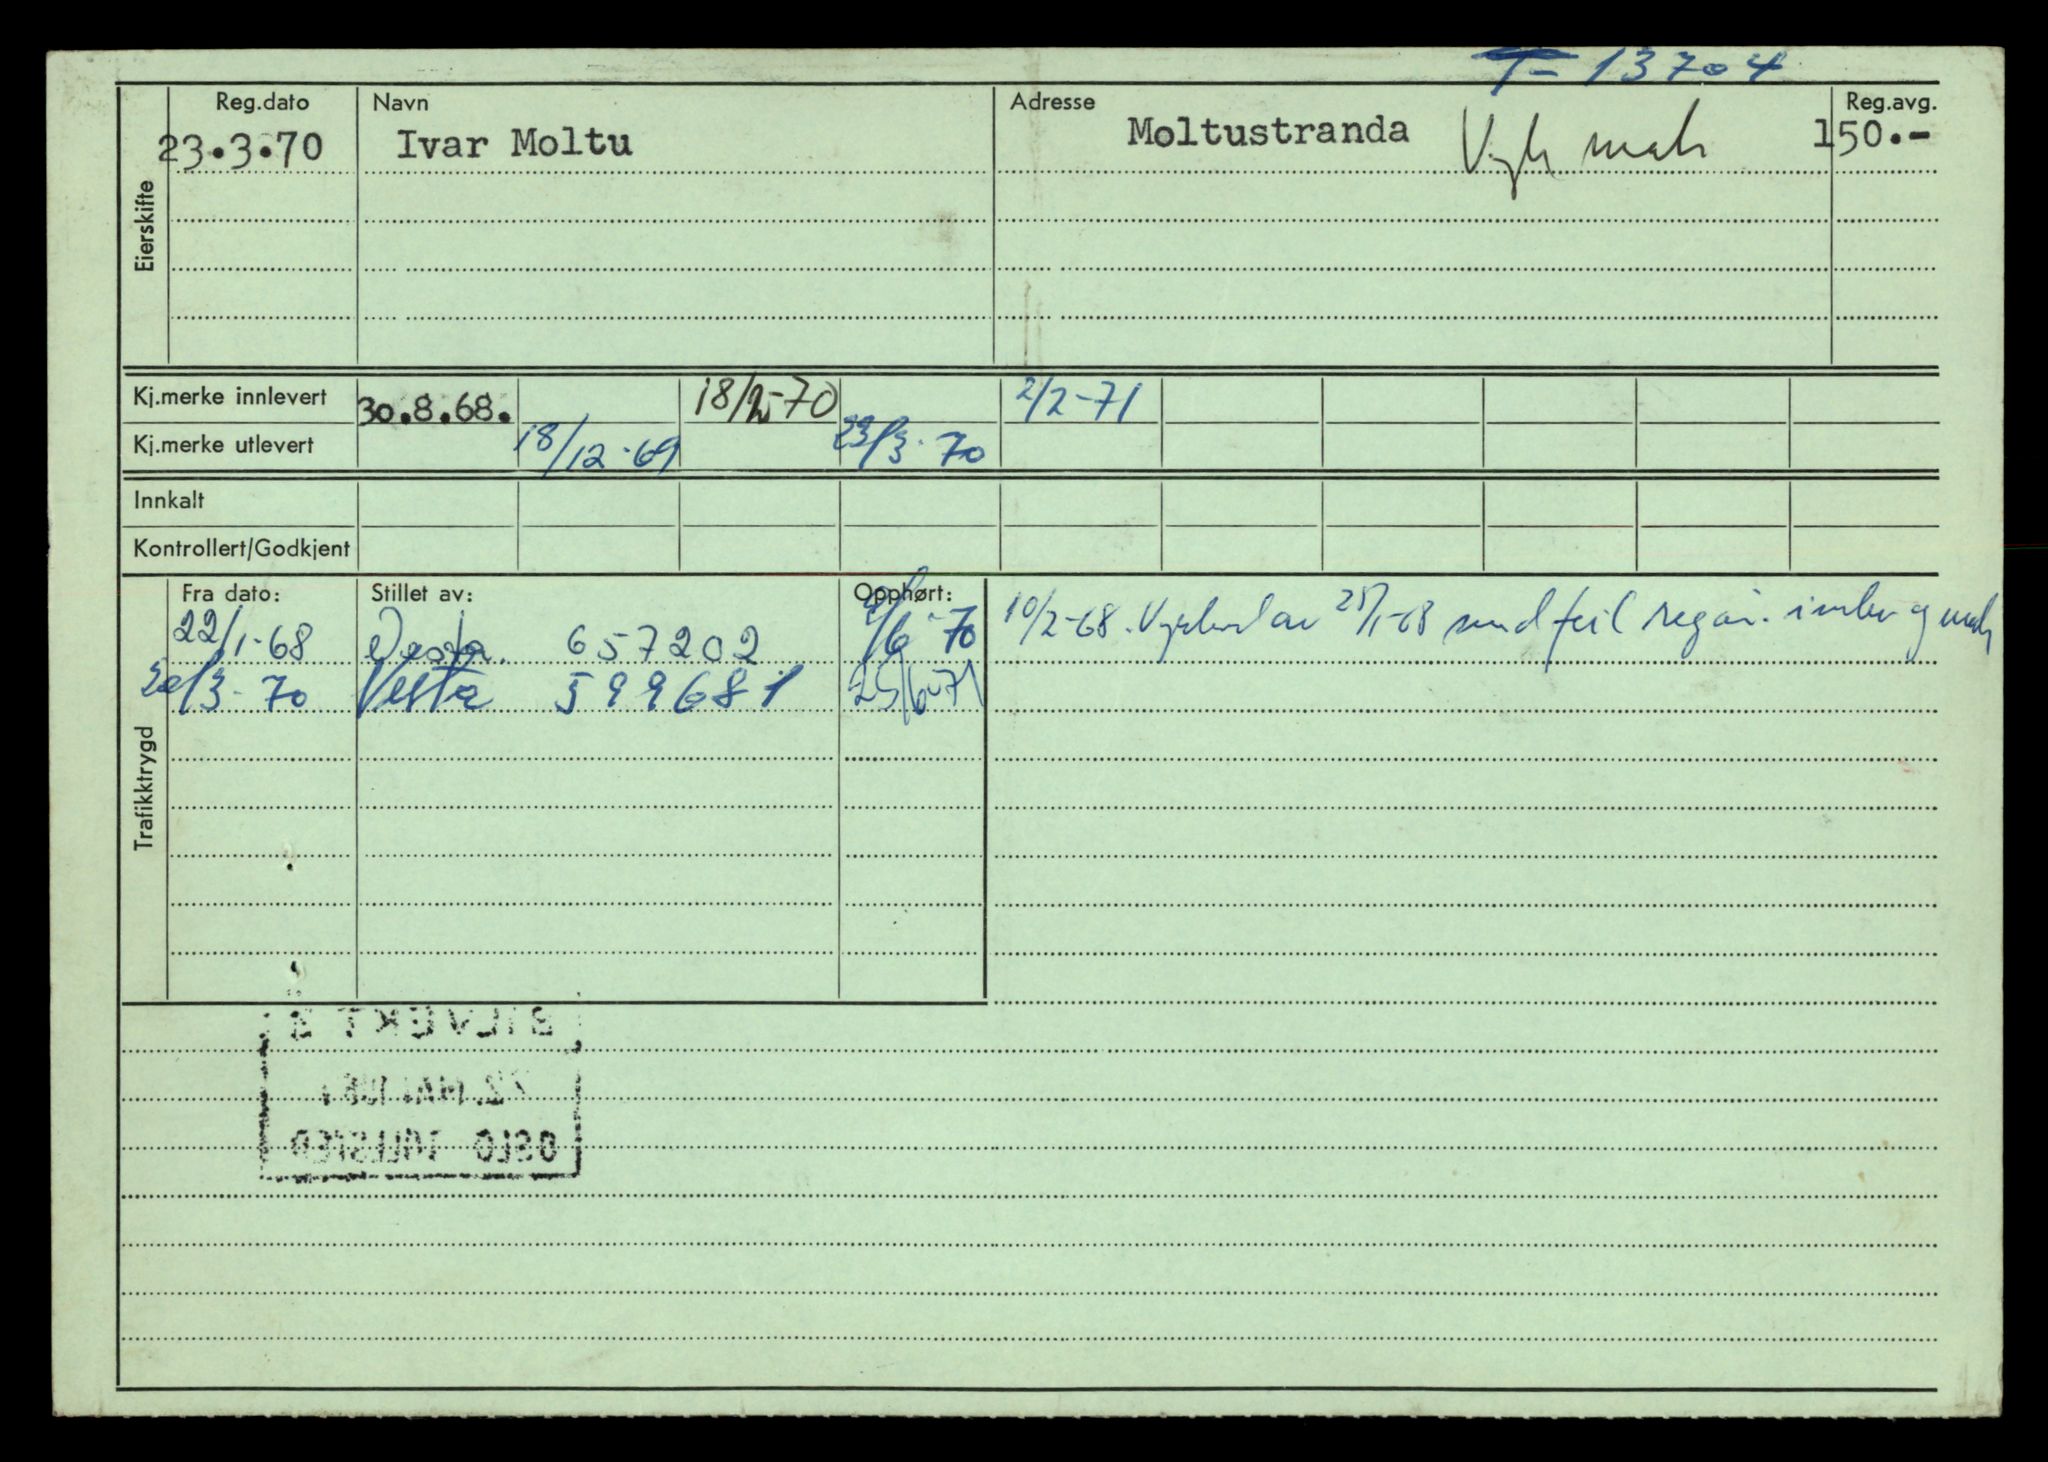 T-13704
Reg.dato Navn Adresse Reg.avg.
23.3.70 Ivar Moltu Moltustranda 150.-
Eierskifte
Kj.merke innlevert 30.8.68. 18/2-70 2/2-71
Kj.merke utlevert 18/12-69 23/3-70
Innkalt
Kontrollert/Godkjent
Fra dato: Stillet av: Opphørt:
22/1-68 Vesta 657202 /6-70 10/2-68. av 25/1-68 feil
20/3-70 Vesta 599681 25/6-71
Trafikktrygd
BILVEKT
OSLO TOLLSTED